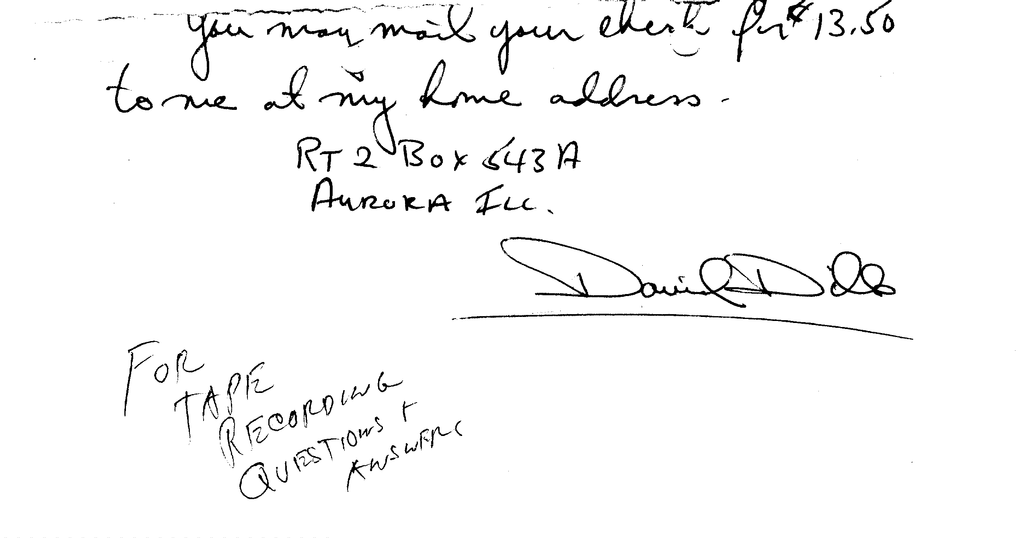 You may mail your check for $13.50
to me at my home address.
RT 2 Box 543A
AURORA ILL.
David Dills
FOR
TAPE
RECORDING
QUESTIONS +
ANSWERS